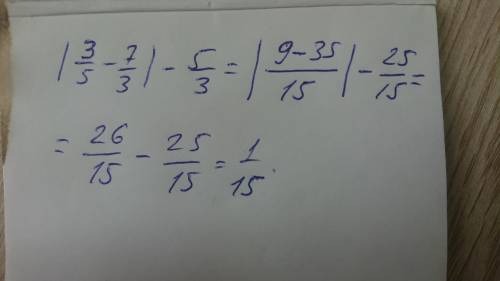 |3/5 - 7/3| - 5/3 = |9-35/15| - 25/15 =
= 26/15 - 25/15 = 1/15.